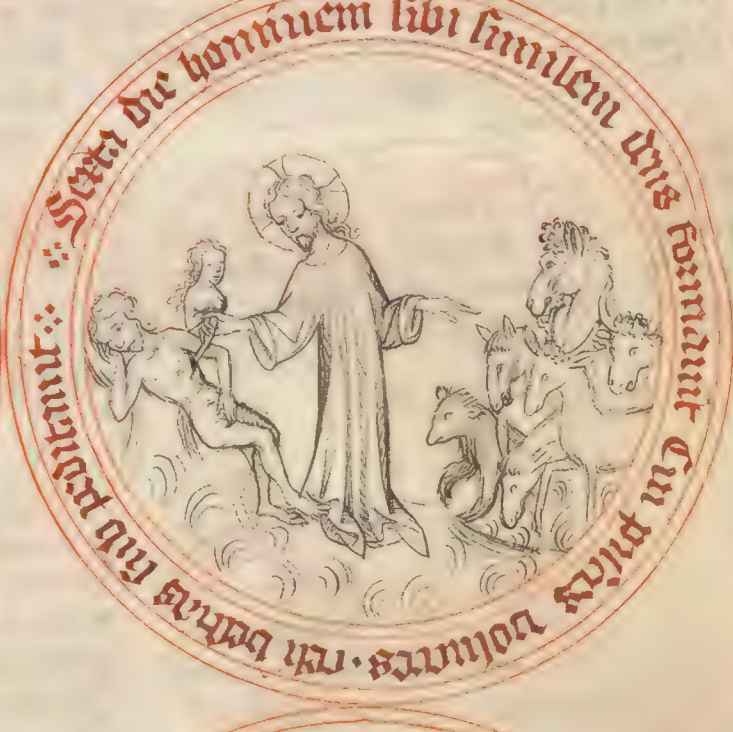 Sexta die hominem sibi similem dns formauit Cui pisces volucres · bestias peditauit